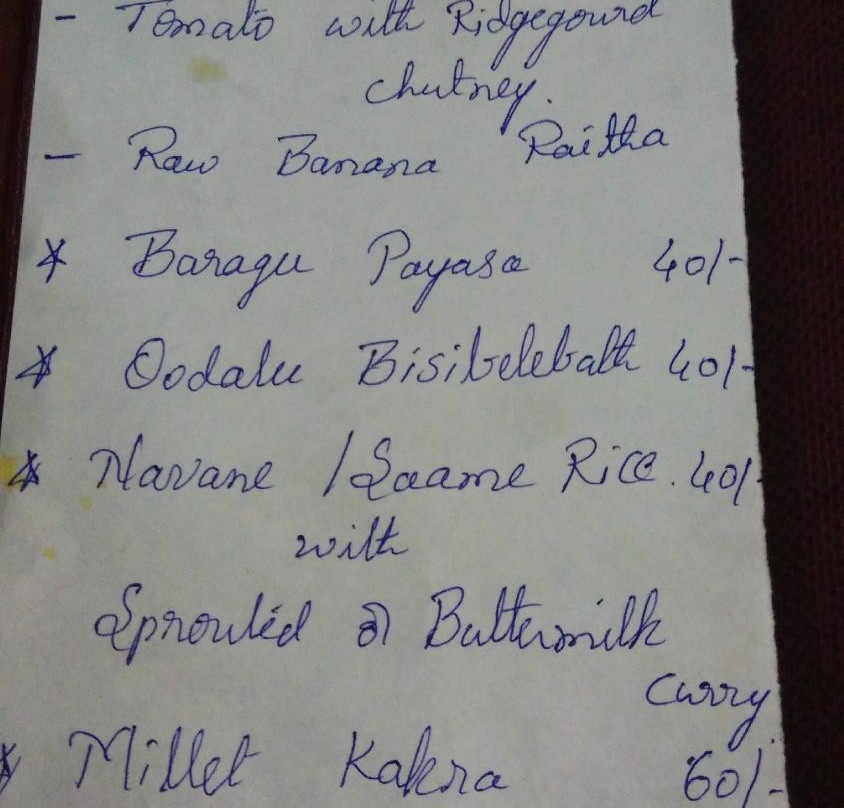 - Tomato with Ridgegourd
chutney.
- Raw Banana Raitha
* Baragu Payasa 40/-
* Oodalu Bisibelebath 40/-
* Navane / Saame Rice. 40/-
with
Sprouted or Buttermilk
curry
* Millet Kakra 60/-